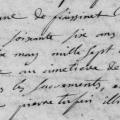 de fraissinet
soixante six ans
may mille sept
au cimetiere de
les sacrements, a
pierre terpin ill